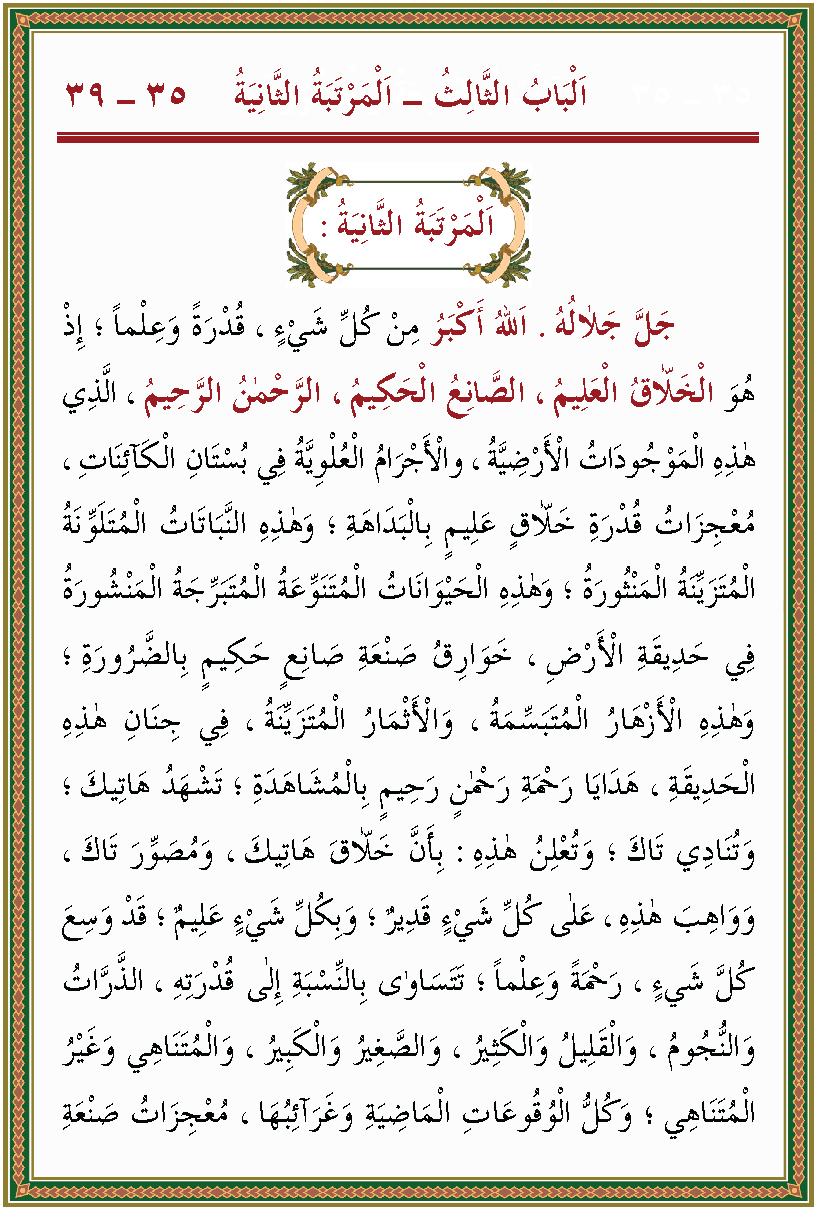 اَلْبَابُ الثَّالِثُ – اَلْمَرْتَبَةُ الثَّانِيَةُ ٣٥ – ٣٩
اَلْمَرْتَبَةُ الثَّانِيَةُ :
جَلَّ جَلَالُهُ . اَللهُ أَكْبَرُ مِنْ كُلِّ شَيْءٍ ، قُدْرَةً وَعِلْماً ؛ إِذْ
هُوَ الْخَلَّاقُ الْعَلِيمُ ، الصَّانِعُ الْحَكِيمُ ، الرَّحْمٰنُ الرَّحِيمُ ، الَّذِي
هٰذِهِ الْمَوْجُودَاتُ الْأَرْضِيَّةُ ، والْأَجْرَامُ الْعُلْوِيَّةُ فِي بُسْتَانِ الْكَآئِنَاتِ ،
مُعْجِزَاتُ قُدْرَةِ خَلَّاقٍ عَلِيمٍ بِالْبَدَاهَةِ ؛ وَهٰذِهِ النَّبَاتَاتُ الْمُتَلَوِّنَةُ
الْمُتَزَيِّنَةُ الْمَنْثُورَةُ ؛ وَهٰذِهِ الْحَيْوَانَاتُ الْمُتَنَوِّعَةُ الْمُتَبَرِّجَةُ الْمَنْشُورَةُ
فِي حَدِيقَةِ الْأَرْضِ ، خَوَارِقُ صَنْعَةِ صَانِعٍ حَكِيمٍ بِالضَّرُورَةِ ؛
وَهٰذِهِ الْأَزْهَارُ الْمُتَبَسِّمَةُ ، وَالْأَثْمَارُ الْمُتَزَيِّنَةُ ، فِي جِنَانِ هٰذِهِ
الْحَدِيقَةِ ، هَدَايَا رَحْمَةِ رَحْمٰنٍ رَحِيمٍ بِالْمُشَاهَدَةِ ؛ تَشْهَدُ هَاتِيكَ ؛
وَتُنَادِي تَاكَ ؛ وَتُعْلِنُ هٰذِهِ : بِأَنَّ خَلَّاقَ هَاتِيكَ ، وَمُصَوِّرَ تَاكَ ،
وَوَاهِبَ هٰذِهِ ، عَلٰى كُلِّ شَيْءٍ قَدِيرٌ ؛ وَبِكُلِّ شَيْءٍ عَلِيمٌ ؛ قَدْ وَسِعَ
كُلَّ شَيءٍ ، رَحْمَةً وَعِلْماً ؛ تَتَسَاوٰى بِالنِّسْبَةِ إِلٰى قُدْرَتِهِ ، الذَّرَّاتُ
وَالنُّجُومُ ، وَالْقَلِيلُ وَالْكَثِيرُ ، وَالصَّغِيرُ وَالْكَبِيرُ ، وَالْمُتَنَاهِي وَغَيْرُ
الْمُتَنَاهِي ؛ وَكُلُّ الْوُقُوعَاتِ الْمَاضِيَةِ وَغَرَآئِبُهَا ، مُعْجِزَاتُ صَنْعَةِ